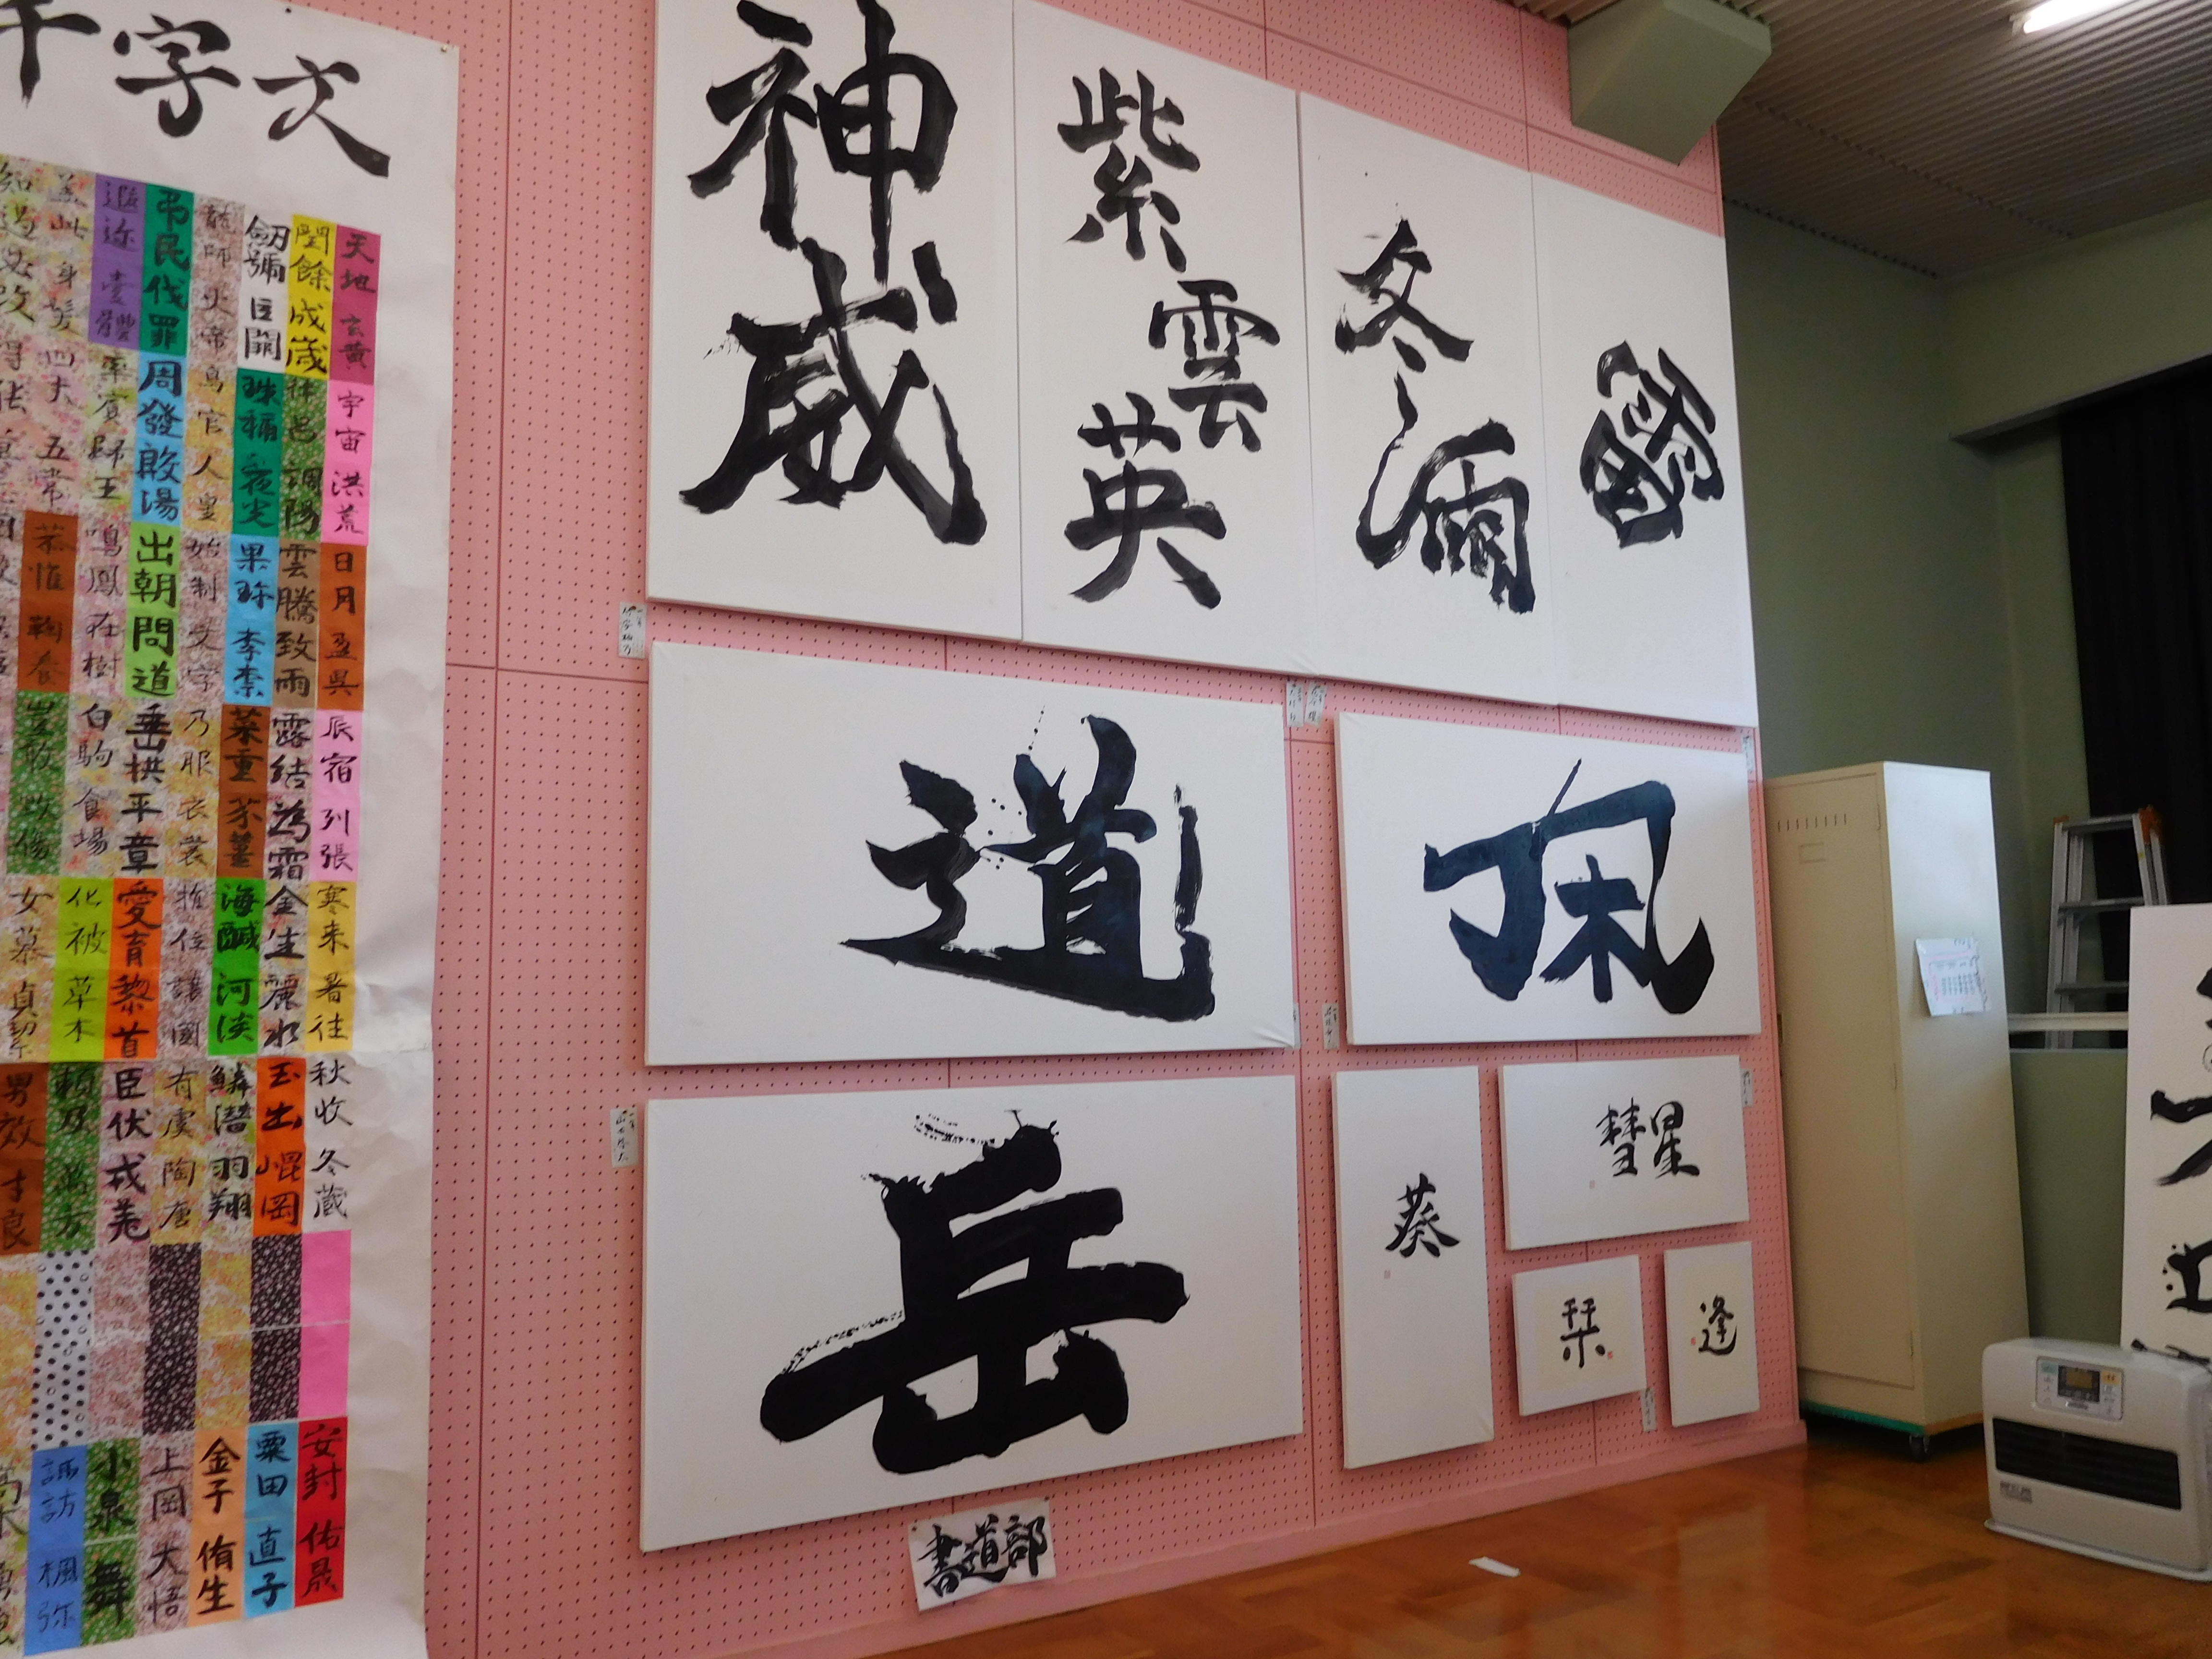 千字文
天地玄黄 宇宙洪荒 日月盈昃 辰宿列張 寒来暑往 秋收冬蔵 安封佑晟
閏餘成歳 律呂調陽 雲騰致雨 露結為霜 金生麗水 玉出崐岡 粟田直子
劒號巨闕 珠稱夜光 果珍李柰 菜重芥薑 海鹹河淡 鱗潜羽翔 金子侑生
龍師火帝 鳥官人皇 始制文字 乃服衣裳 推位譲國 有虞陶唐 上岡大悟
弔民伐罪 周發殷湯 出朝問道 垂拱平章 愛育黎首 臣伏戎羌 小泉舞
遐迩壹體 率賓歸王 鳴鳳在樹 白駒食場 化被草木 頼及萬方 諏訪楓弥
蓋此身髪 四大五常 恭惟鞠養 豈敢毀傷 女慕貞絜 男效才良 高木
知過必改
神威
紫雲英
冬
道
佩
岳
葵
彗星
栞
逢
書道部